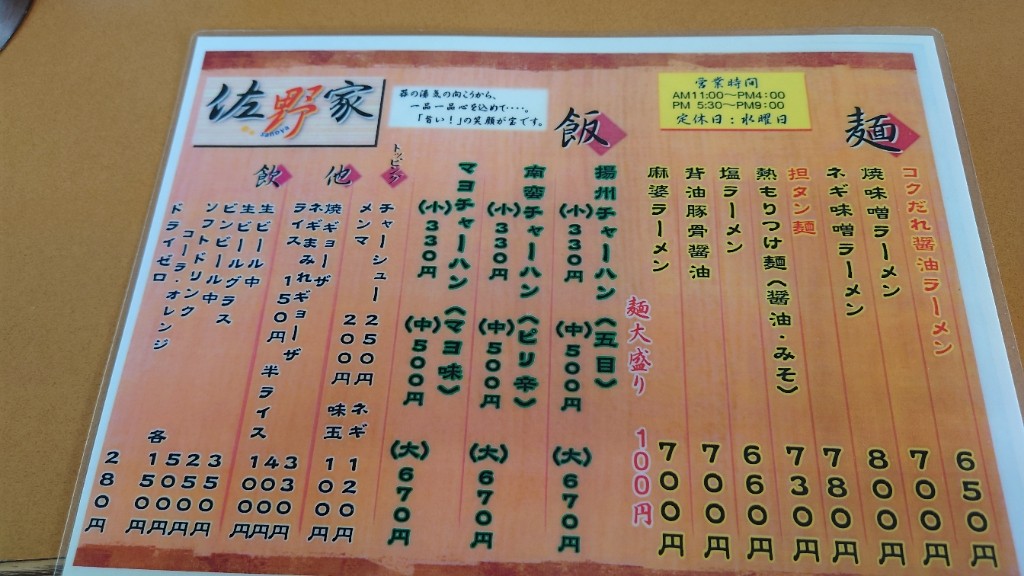 佐野家
sanoya
蒜の湯気の向こうから、
一品一品心を込めて‥‥。
「旨い！」の笑顔が宝です。
営業時間
AM11:00〜PM4:00
PM 5:30〜PM9:00
定休日：水曜日
麺
コクだれ醤油ラーメン 650円
焼味噌ラーメン 700円
ネギ味噌ラーメン 800円
担タン麺 780円
熱もりつけ麺(醤油・みそ) 730円
塩ラーメン 660円
背油豚骨醤油 700円
麻婆ラーメン 700円
麺大盛り 100円
飯
揚州チャーハン(五目)
(小)330円 (中)500円 (大)670円
南蛮チャーハン(ピリ辛)
(小)330円 (中)500円 (大)670円
マヨチャーハン(マヨ味)
(小)330円 (中)500円 (大)670円
トッピング
チャーシュー 250円 ネギ 120円
メンマ 200円 味玉 100円
他
焼ギョーザ 330円
ネギまみれギョーザ 400円
ライス 150円 半ライス 100円
飲
生ビール中 350円
生ビールグラス 250円
ビンビール中 500円
ソフトドリンク
コーラ・オレンジ 各150円
ドライゼロ 280円